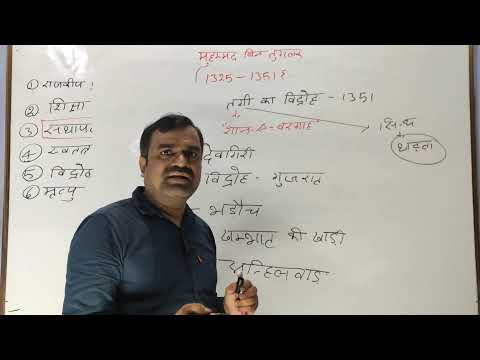 मुहम्मद बिन तुगलक
(1325 - 1351 ई
① राजकीय
② शिक्षा
③
④ स्वतंत्र
⑤ विद्रोह
⑥ मृत्यु
तगी का विद्रोह - 1351
सिन्ध
थट्टा
देवगिरी
विद्रोह - गुजरात
- भडौच
खम्भात की खाडी
अन्हिलवाड